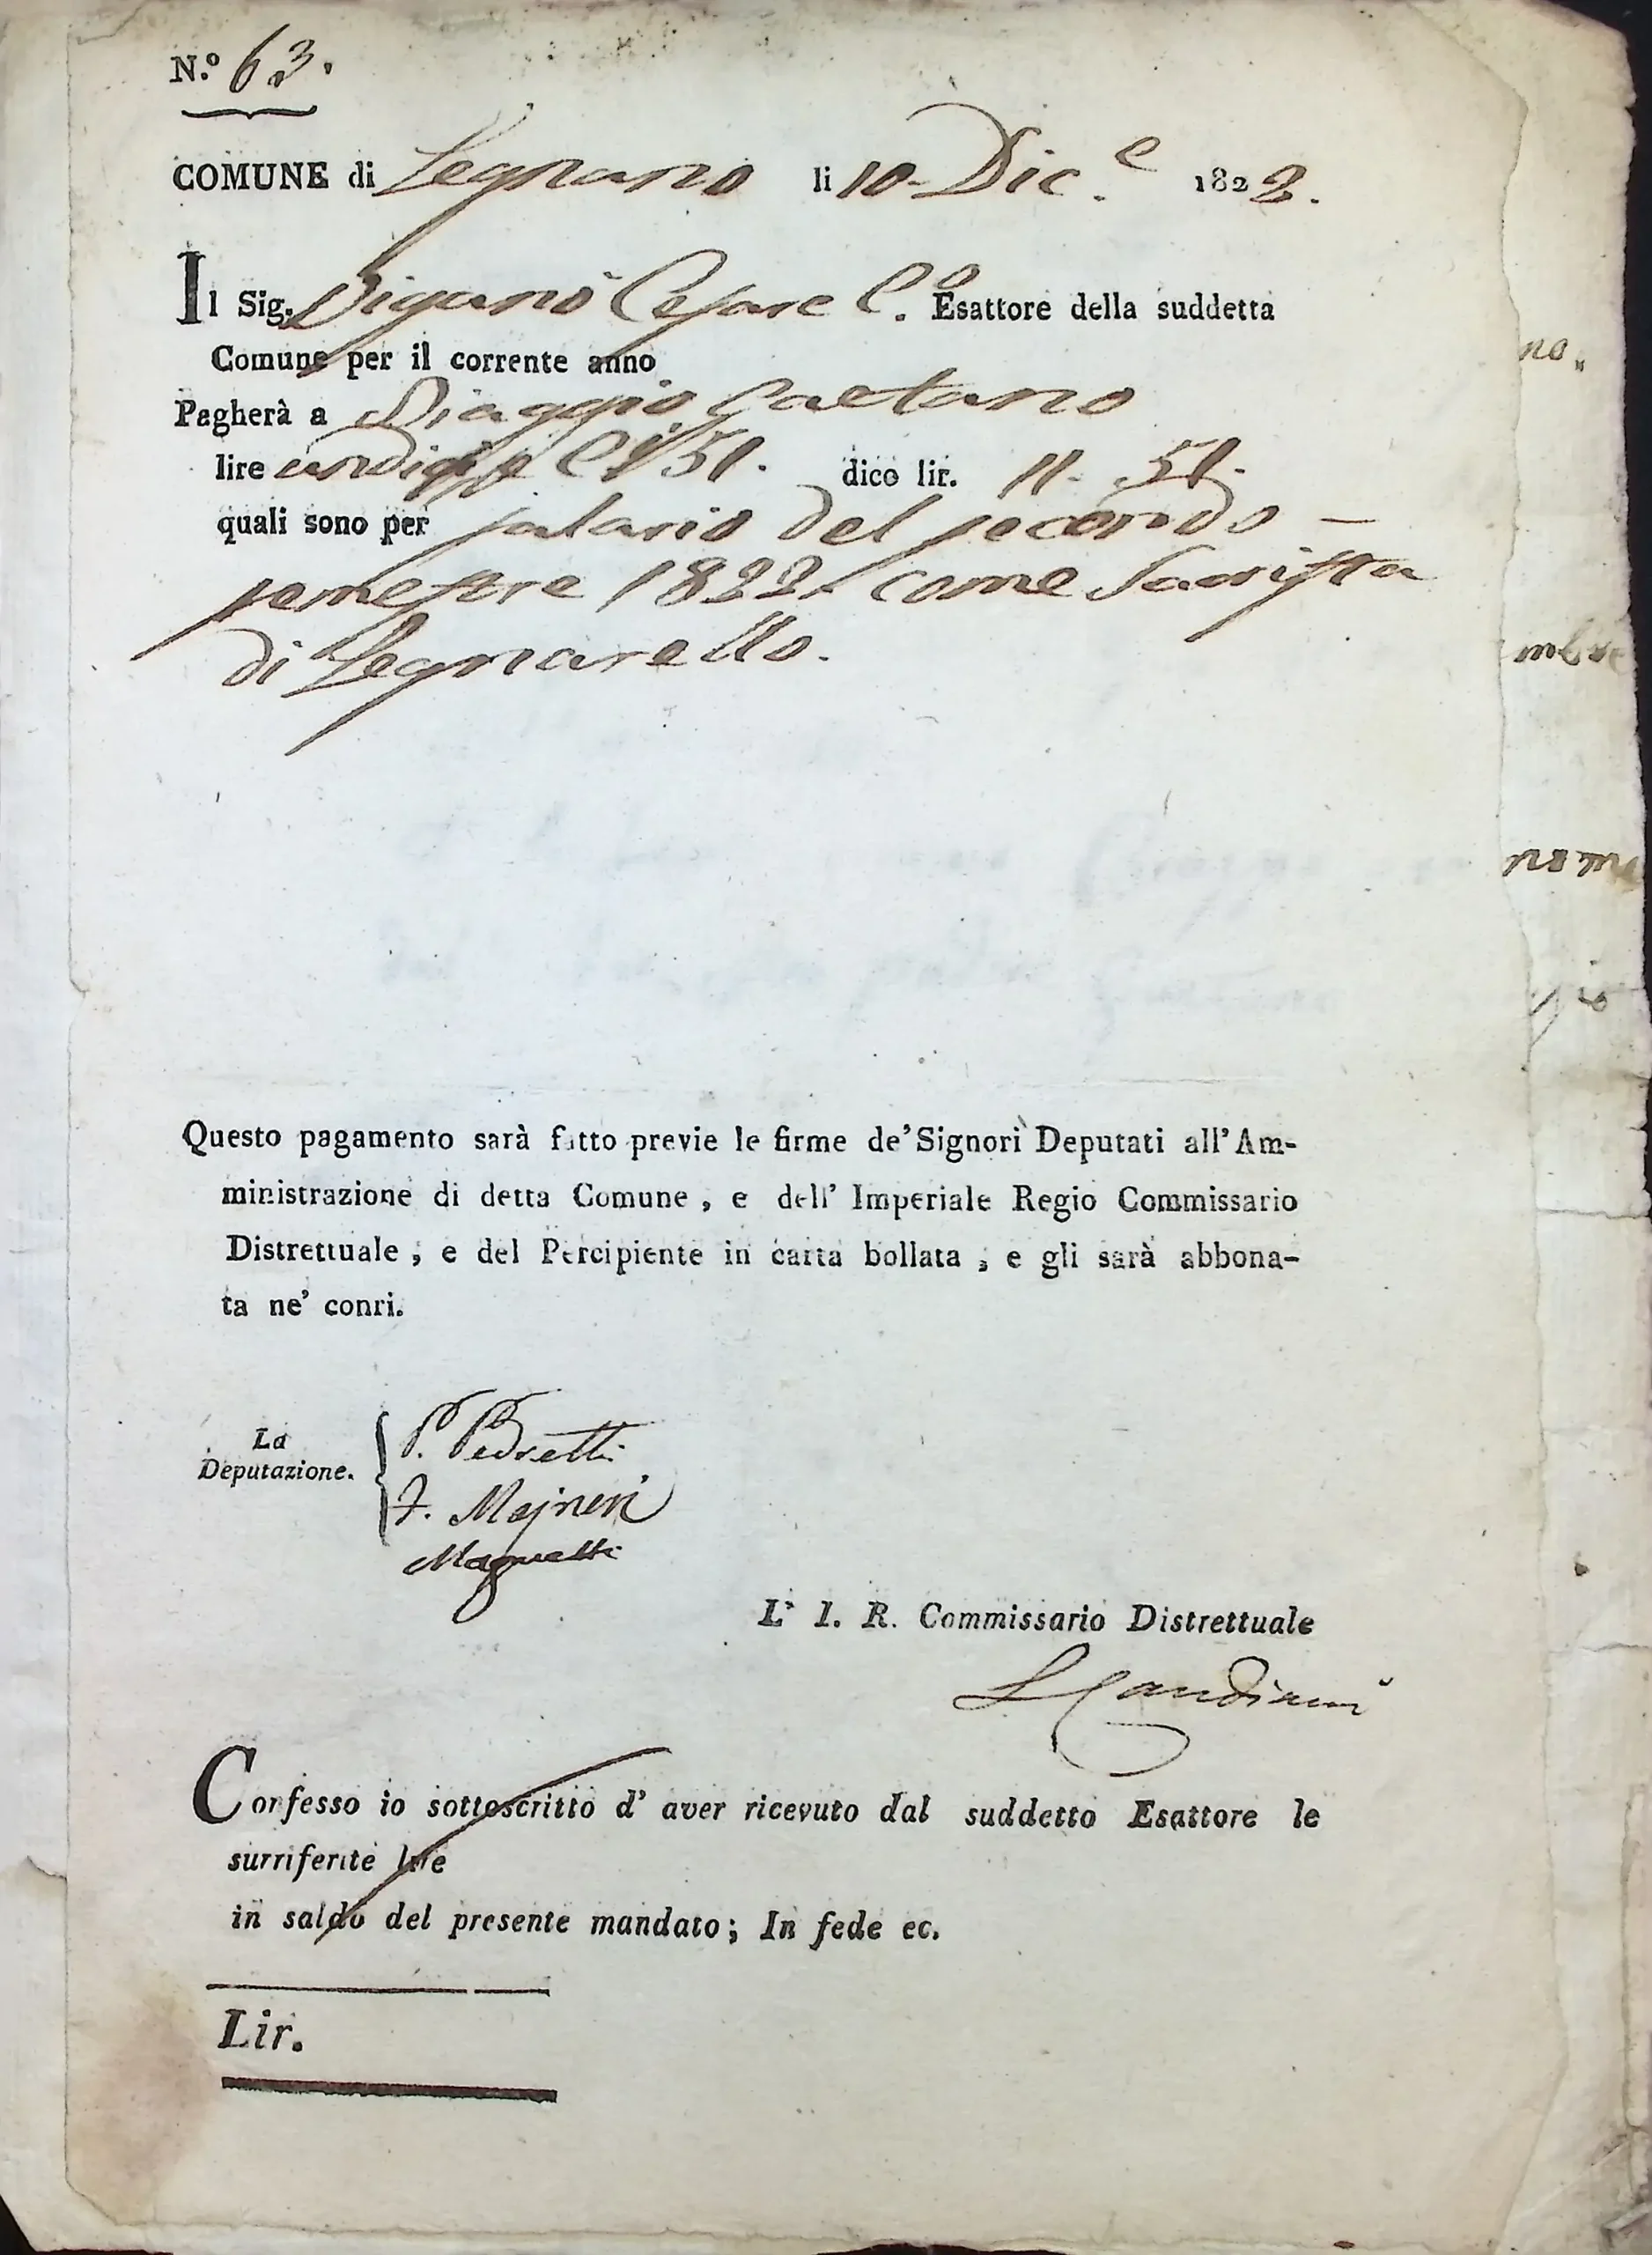 N.º 63.
COMUNE di Legnano li 10 Dic.e 1822.
Il Sig. Viganò Cesare C.o Esattore della suddetta
Comune per il corrente anno
Pagherà a Biaggio Gaetano
lire undici, e C.i 51. dico lir. 11. 51.
quali sono per salario del secondo —
semestre 1822 come Sacrista
di Legnarello.
Questo pagamento sarà fatto previe le firme de' Signori Deputati all' Am-
ministrazione di detta Comune, e dell' Imperiale Regio Commissario
Distrettuale, e del Percipiente in carta bollata, e gli sarà abbona-
ta ne' conti.
La
Deputazione.
P. Pedretti
F. Majneri
L' I. R. Commissario Distrettuale
L Candiani
Confesso io sottoscritto d' aver ricevuto dal suddetto Esattore le
surriferite lire
in saldo del presente mandato; In fede ec.
Lir.